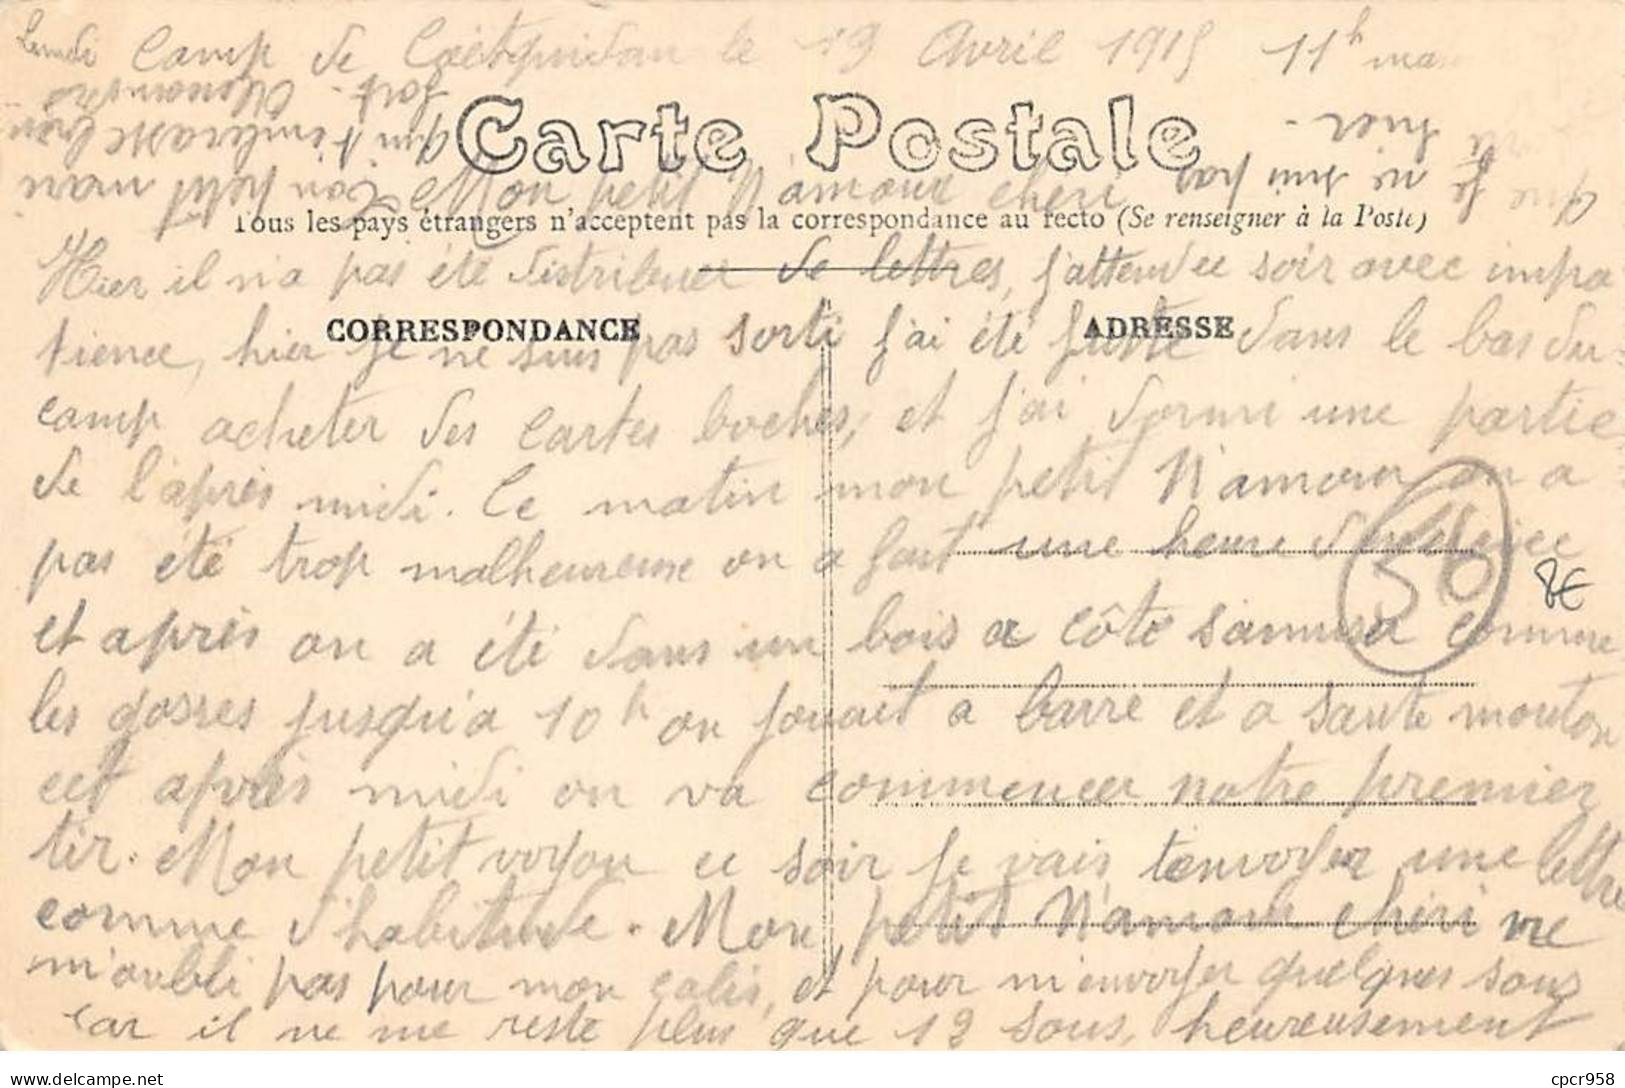 Lundi Camp de Coëtquidan le 19 Avril 1915 11h
Carte Postale
Mon petit N'amour cheri
Tous les pays étrangers n'acceptent pas la correspondance au recto (Se renseigner à la Poste)
Hier il n'a pas été distribuer de lettres, j'attend ce soir avec impa
CORRESPONDANCE
ADRESSE
tience, hier je ne suis pas sorti j'ai été juste dans le bas du
camp acheter des cartes boches, et j'ai dormi une partie
de l'après midi. Ce matin mon petit N'amour on a
pas été trop malheureuse on a fait une heure d'exercice
et après on a été dans un bois a côté s'amuser comme
les gosses jusqu'a 10h on jouait a barre et a saute mouton
cet après midi on va commencer notre premier
tir. Mon petit voyou ce soir je vais t'envoyer une lettre
comme d'habitude. Mon petit N'amour cheri ne
m'oubli pas pour mon colis, et pour m'envoyer quelques sous
car il ne me reste plus que 12 sous, heureusement
que je ne suis pas
hier.
Ton petit mari
qui t'embrasse bien
fort.
56
8€
cpcr958